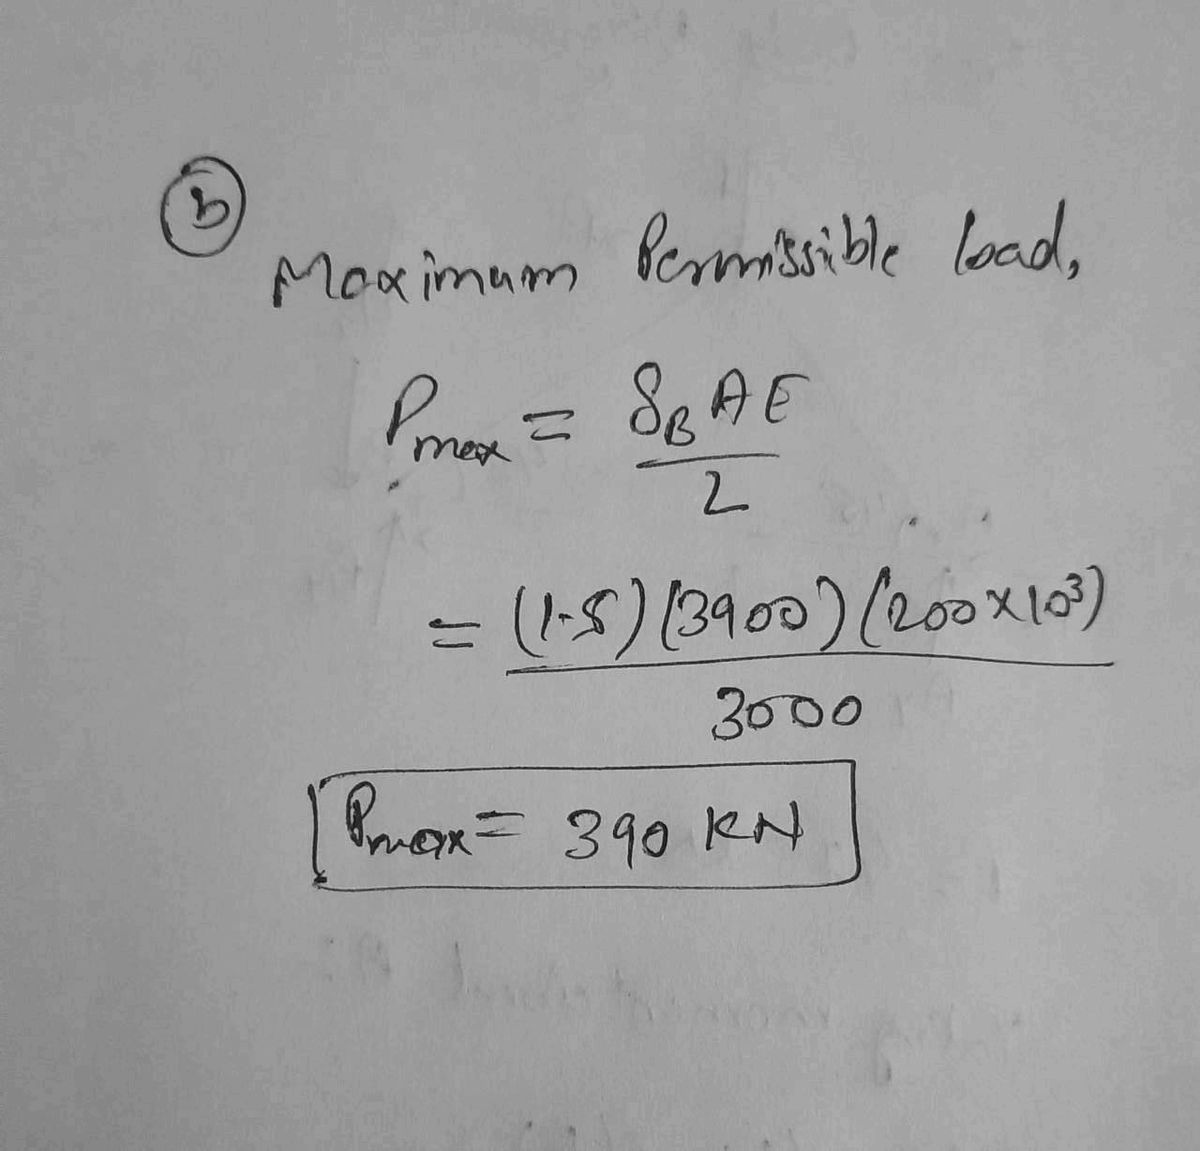 b
Maximum Permissible load,
Pmax = δB A E
L
= (1.5) (3900) (200 x 10³)
3000
Pmax = 390 KN